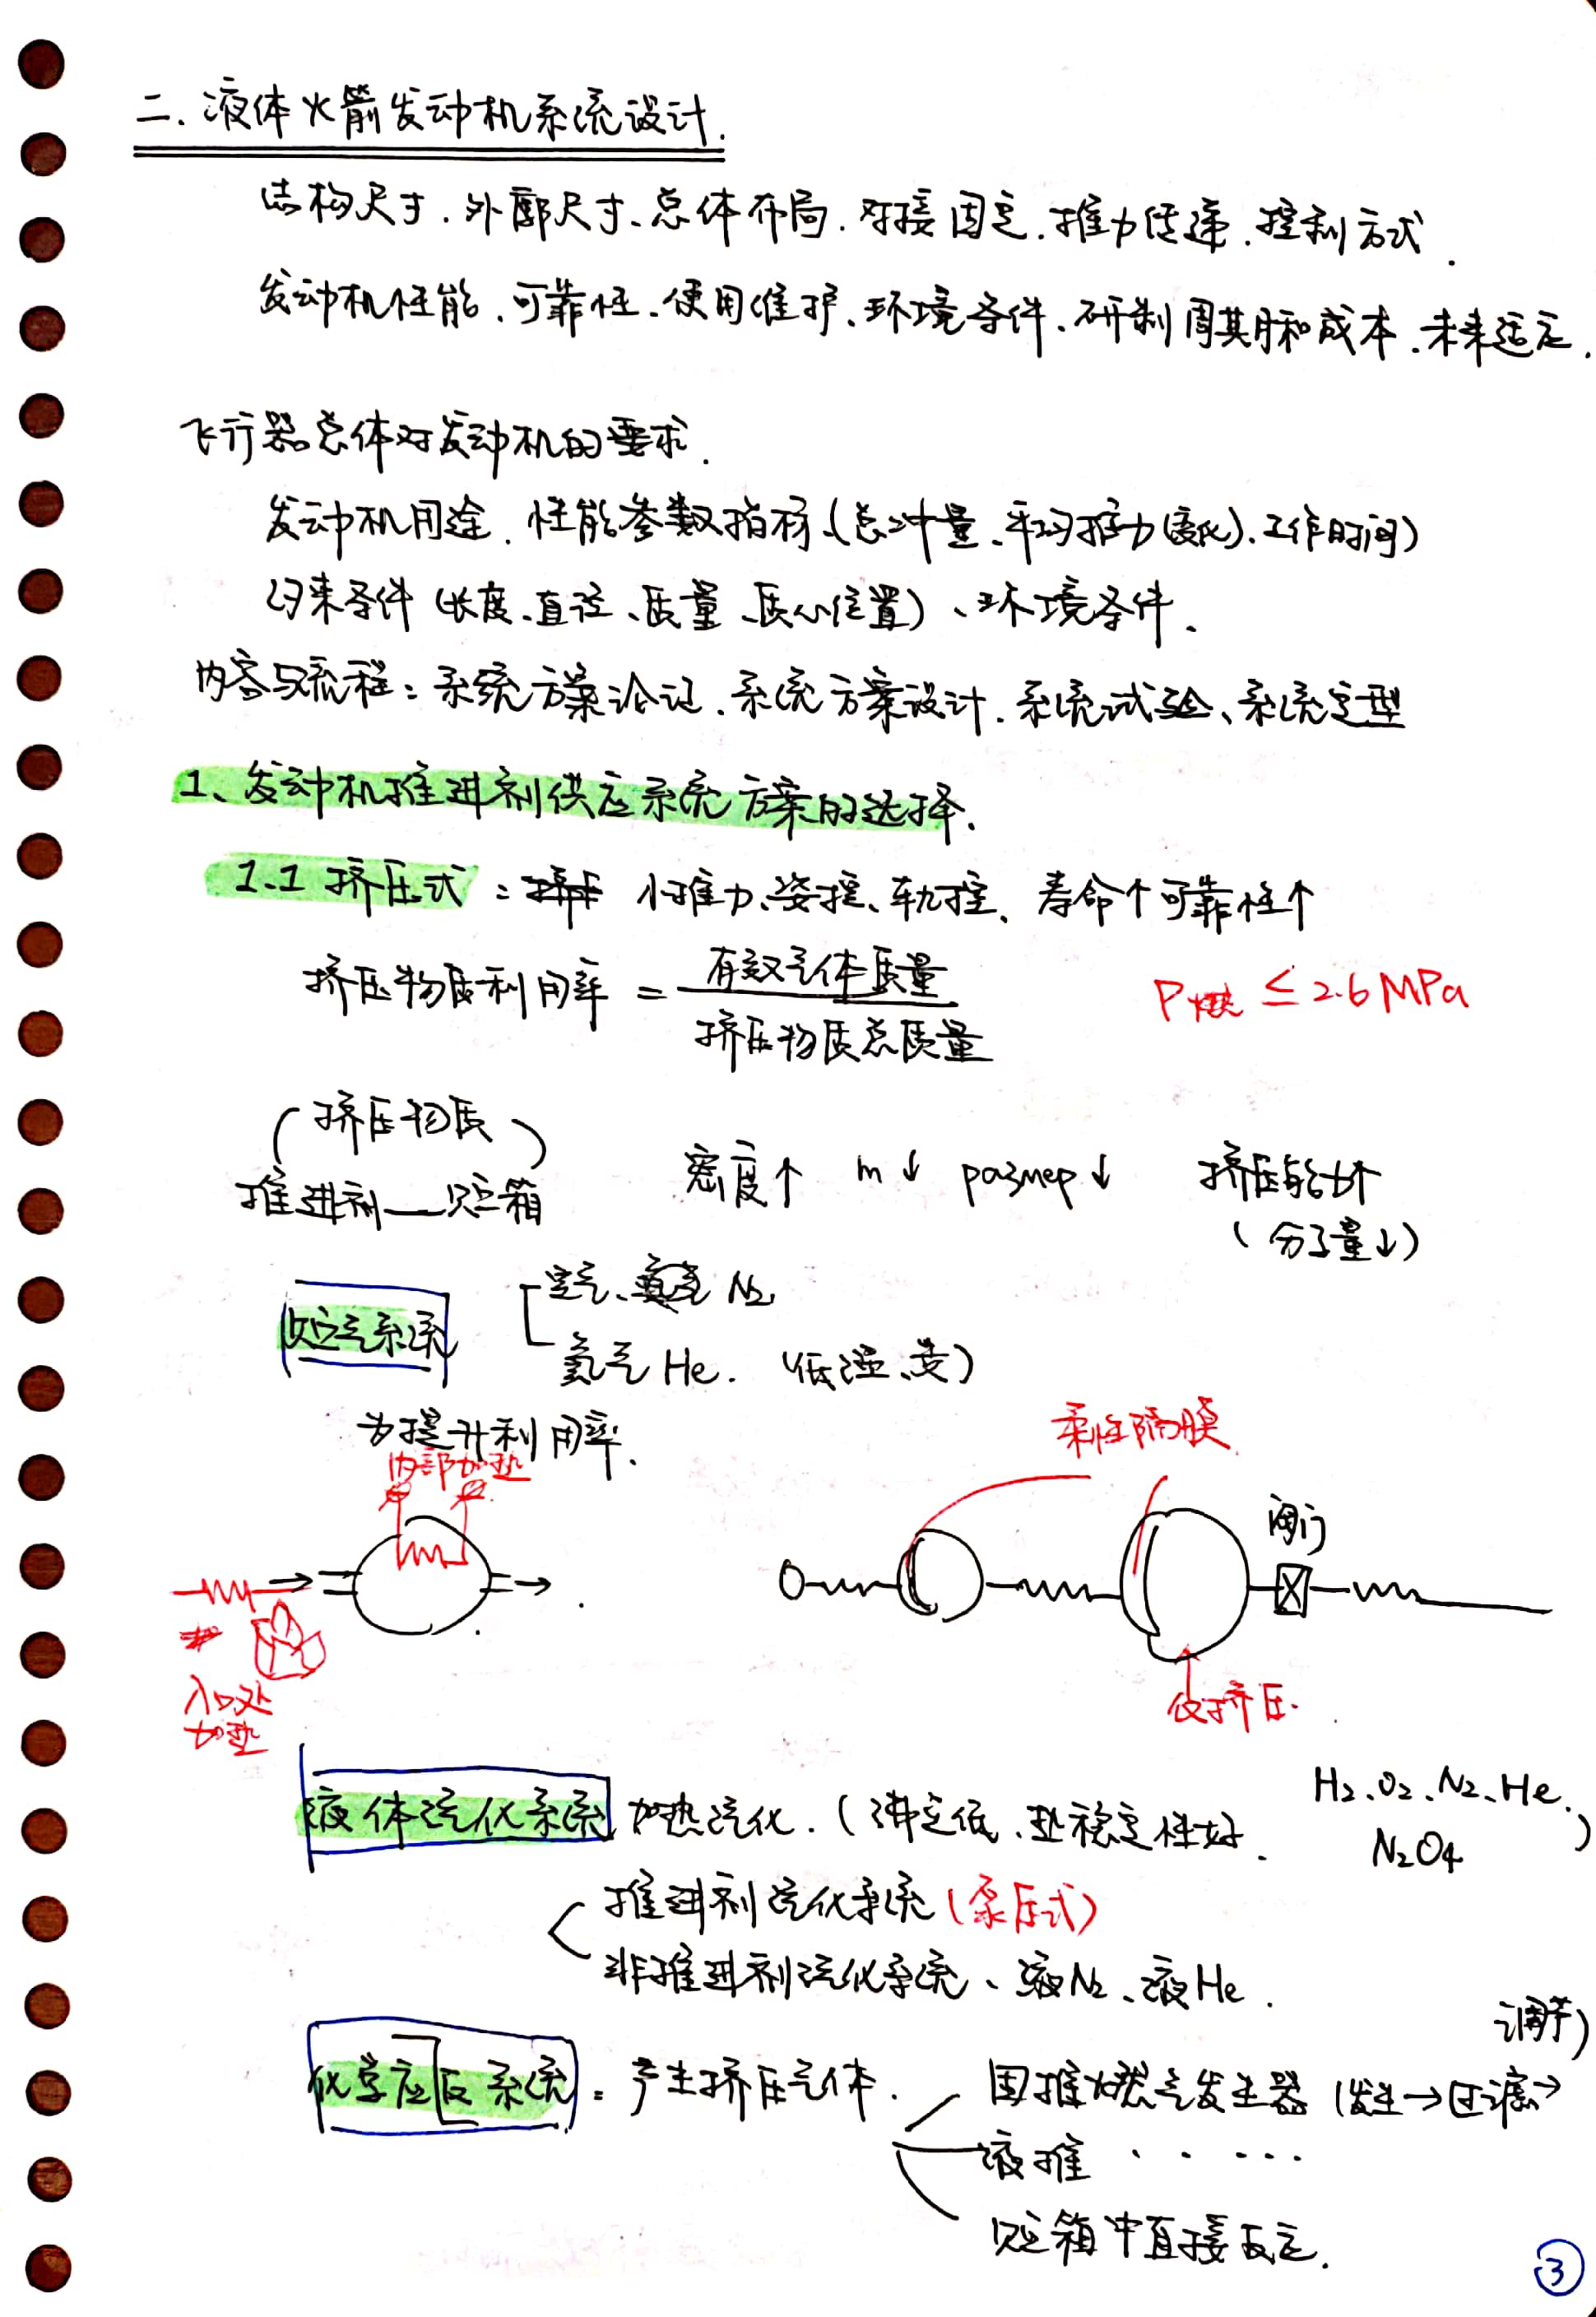 二. 液体火箭发动机系统设计.
结构尺寸. 外部尺寸、总体布局. 对接固定. 推力传递. 控制方式.
发动机性能、可靠性、使用维护、环境条件、研制周期和成本. 未来适应.
飞行器总体对发动机的要求.
发动机用途. 性能参数指标(总冲量、平均推力(变化)、工作时间)
约束条件 (长度、直径、质量、质心位置)、环境条件.
内容与流程: 系统方案论证. 系统方案设计. 系统试验、系统定型
1、发动机推进剂供应系统方案的选择.
1.1 挤压式: 小推力、姿控、轨控. 寿命↑可靠性↑
挤压物质利用率 = 有效气体质量 / 挤压物质总质量
P燃 ≤ 2.6 MPa
(挤压物质)
推进剂—贮箱
密度↑ m↓ размер↓ 挤压能力↑
(分子量↓)
贮气系统
空气、氮气 N₂
氦气 He. (低温、贵)
为提升利用率.
内部加热
柔性隔膜
阀门
入口处
加热
仅挤压.
液体汽化系统 加热汽化. (沸点低、热稳定性好. H₂、O₂、N₂、He. N₂O₄)
推进剂汽化系统 (泵压式)
非推进剂汽化系统、液N₂、液He.
化学反应系统: 产生挤压气体.
固推燃气发生器 (发生→过滤→调节)
液推 · · · · ·
贮箱中直接反应.
3